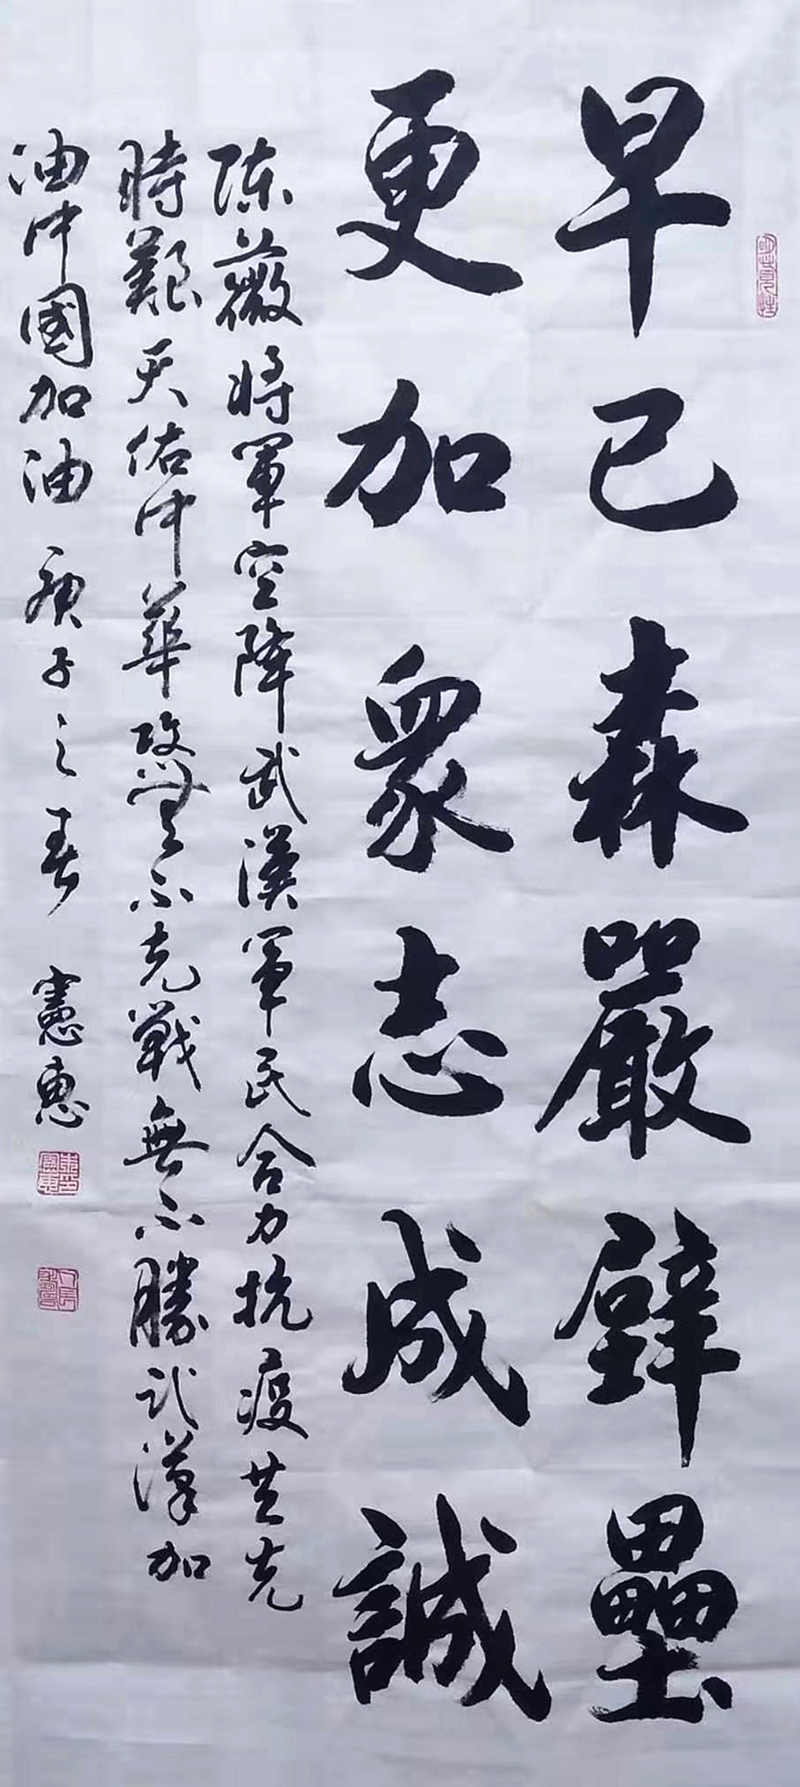 早已森嚴壁壘
更加衆志成誠
陈薇將軍空降武漢軍民合力抗疫共克
時艱天佑中華攻無不克戰無不勝武漢加
油中國加油 庚子之春 憲惠